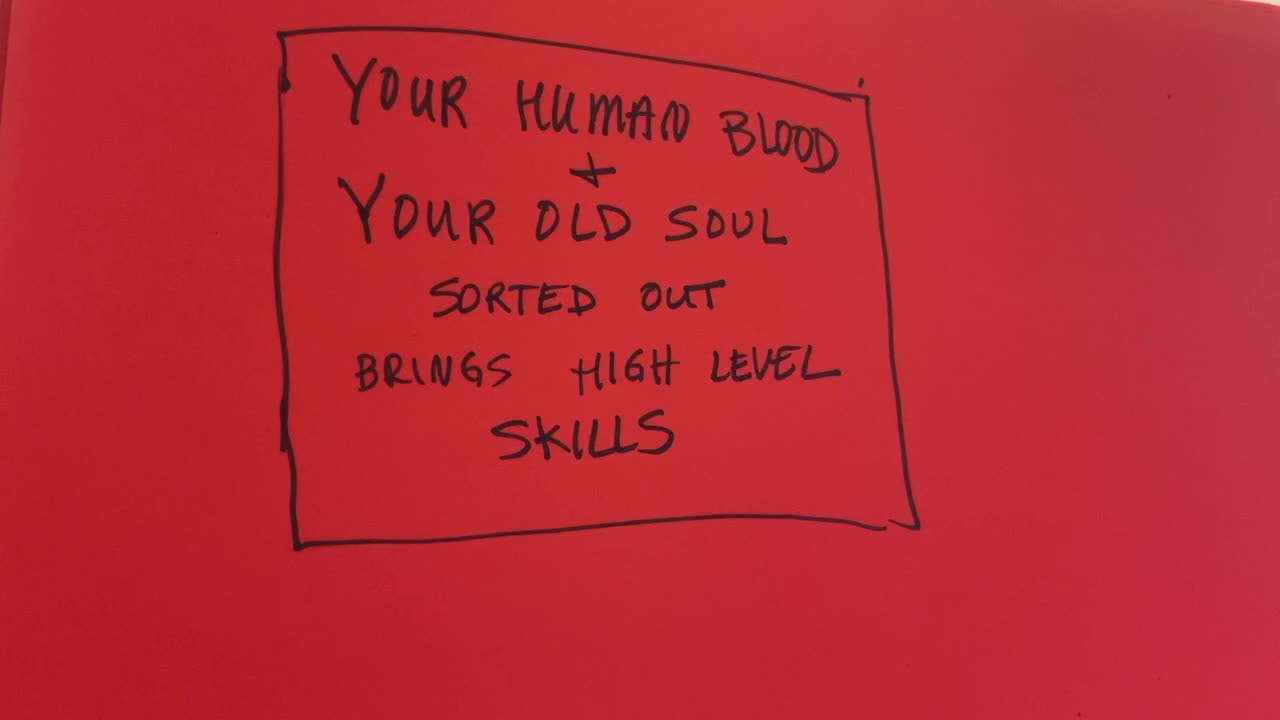 YOUR HUMAN BLOOD
+
YOUR OLD SOUL
SORTED OUT
BRINGS HIGH LEVEL
SKILLS